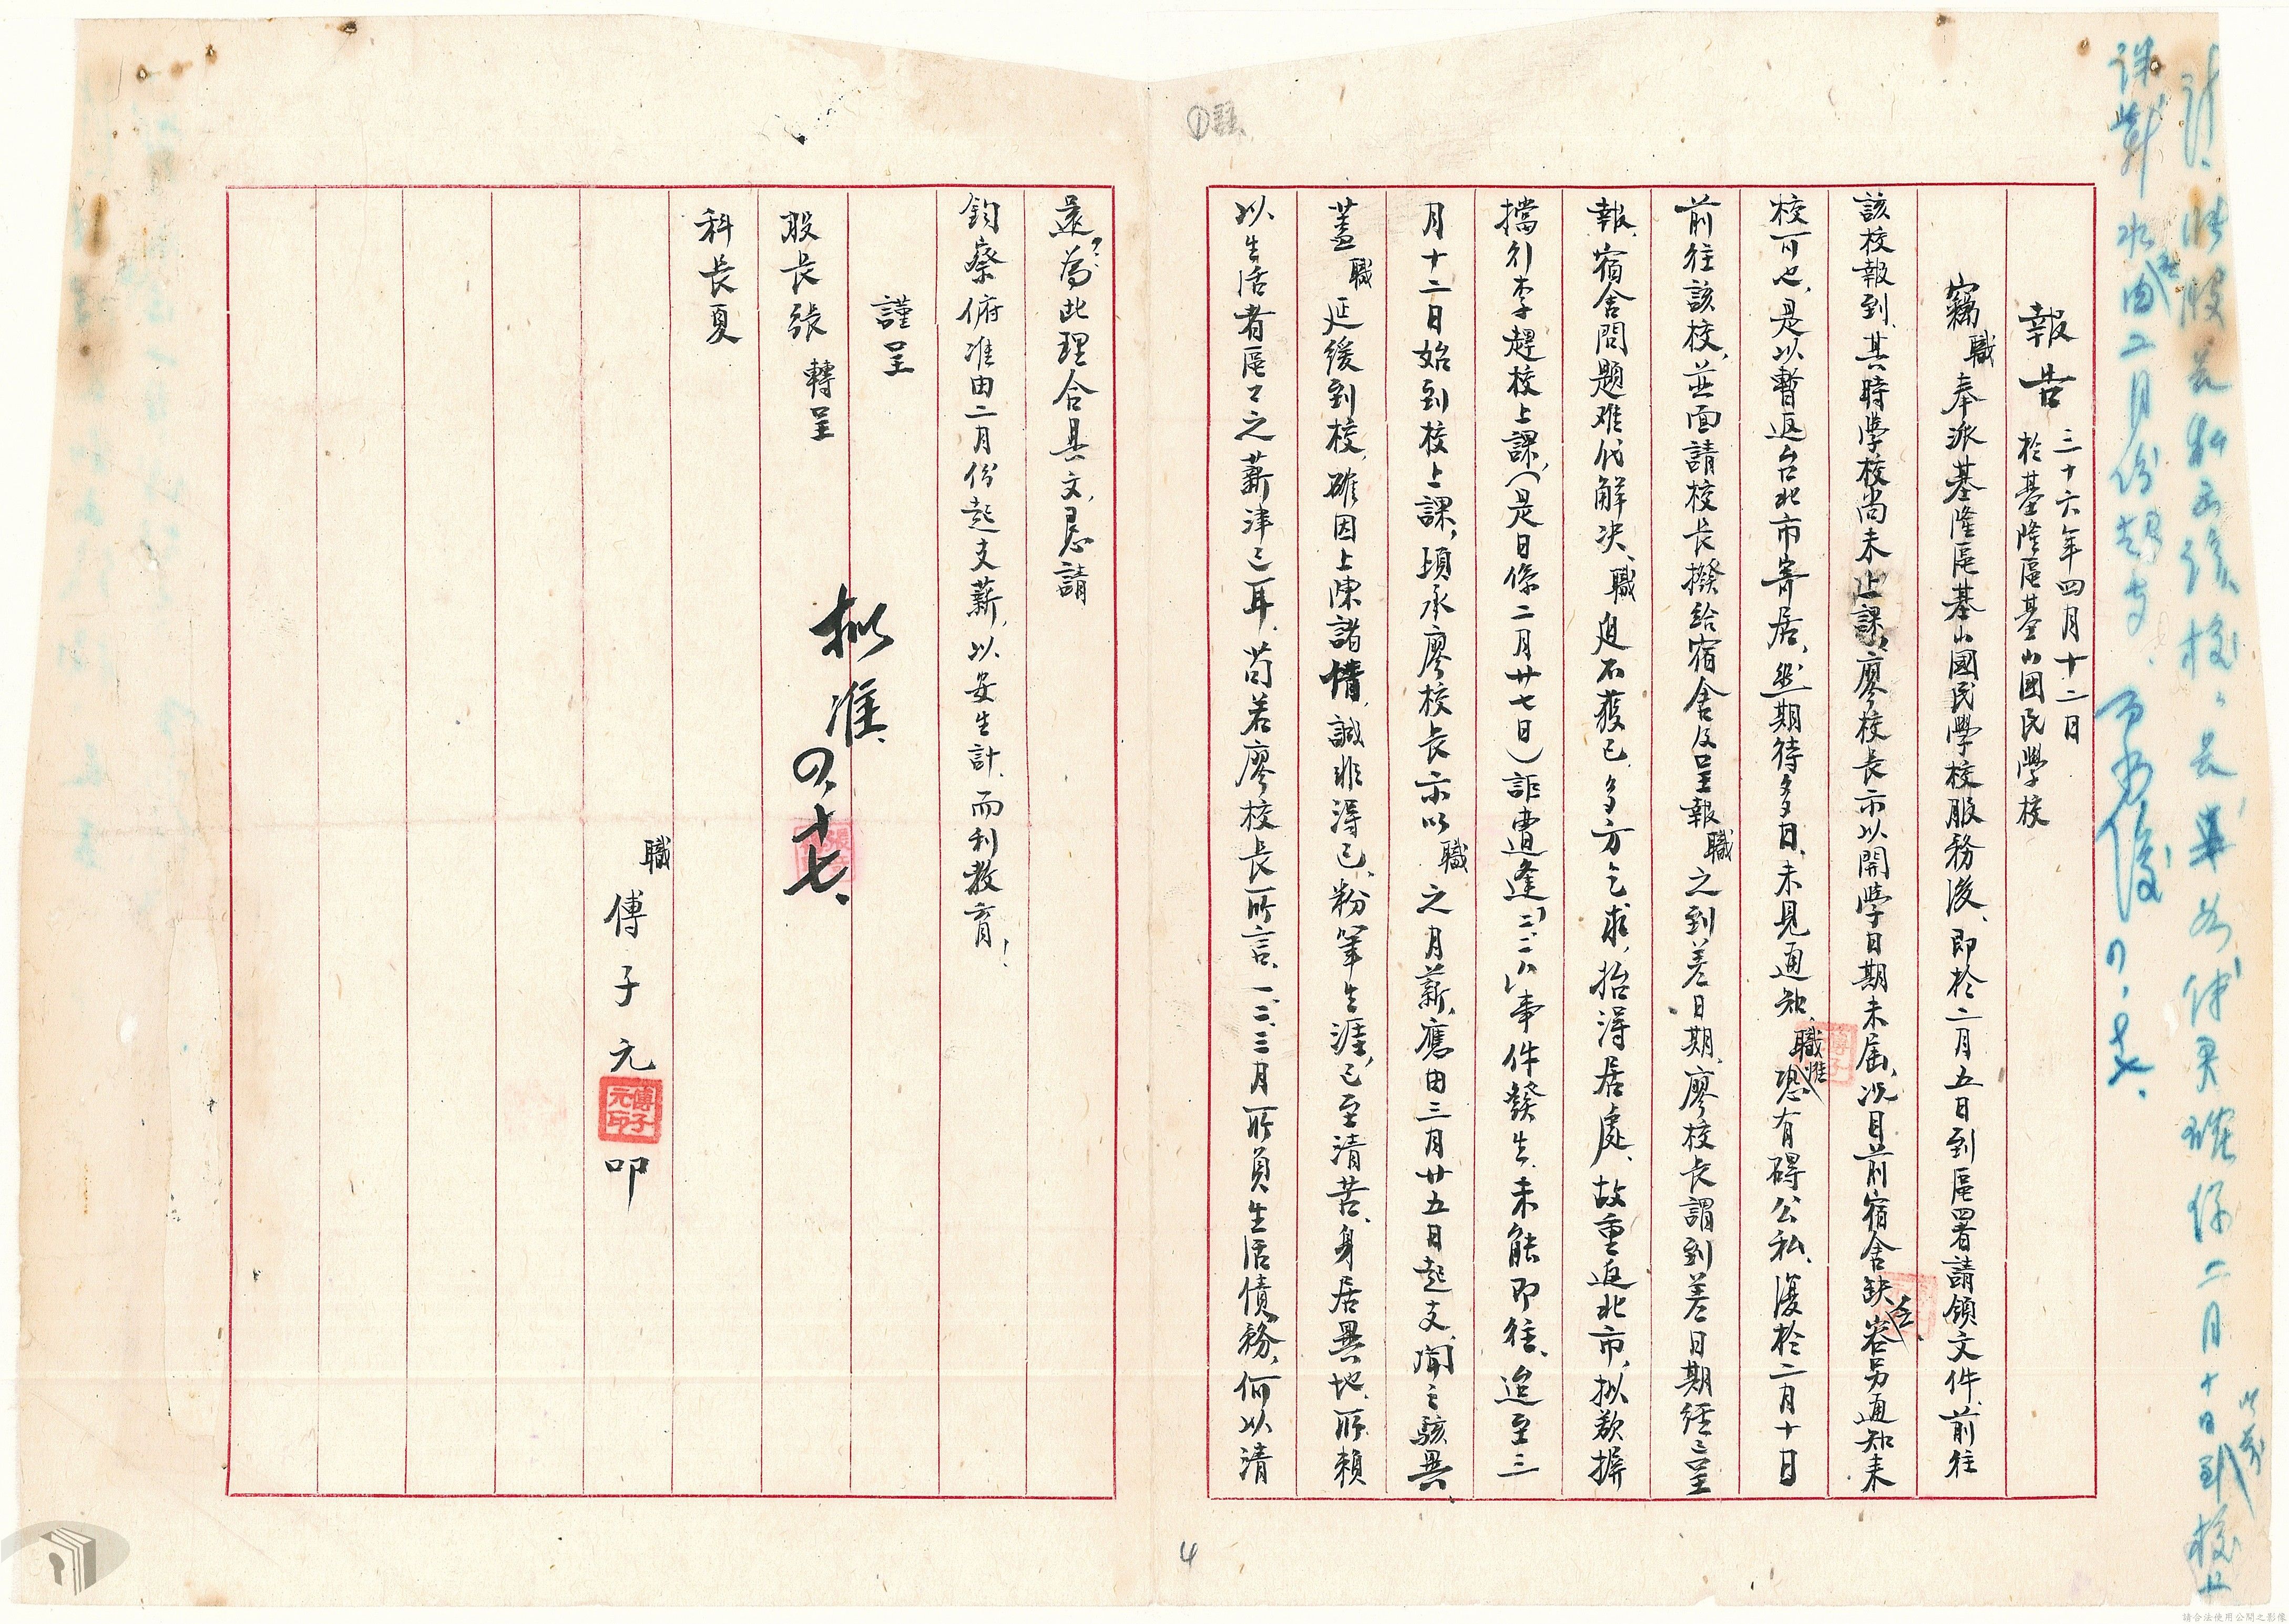 報告 三十六年四月十二日
於基隆區基山國民學校
竊職奉派基隆區基山國民學校服務後、即於二月五日到區署請領文件、前往
該校報到、其時學校尚未上課、廖校長示以開學日期未屆、況目前宿舍缺乏、容另通知來
校可也、是以暫返台北市寄居、然期待多日、未見通知、職惟恐有碍公私、復於二月十日
前往該校、並面請校長撥給宿舍及呈報職之到差日期、廖校長謂到差日期經已呈
報、宿舍問題难代解決、職迫不獲已、多方乞求、抬得居處、故重返北市、拟欲摒
擋行李趕校上課、(是日係二月廿七日)詎遭逢「二、二八」事件發生、未能即往、迨至三
月十二日始到校上課、頃承廖校長示以職之月薪、應由三月廿五日起支、聞之駭異
蓋職延緩到校、確因上陳諸情、誠非得已、粉筆生涯、已至清苦、身居異地、所賴
以生活者區區之薪津已耳、苟若廖校長所言、一、二、三月所負生活債務、何以清
還?為此理合具文、懇請
鈞察俯准由二月份起支薪、以安生計、而利教育!
謹呈
股長張 轉呈
科長夏
職 傅子元 叩
傅子元印
拟准、四、十七、
二月十日到校
由二月份起支
4
請合法使用公開之影像